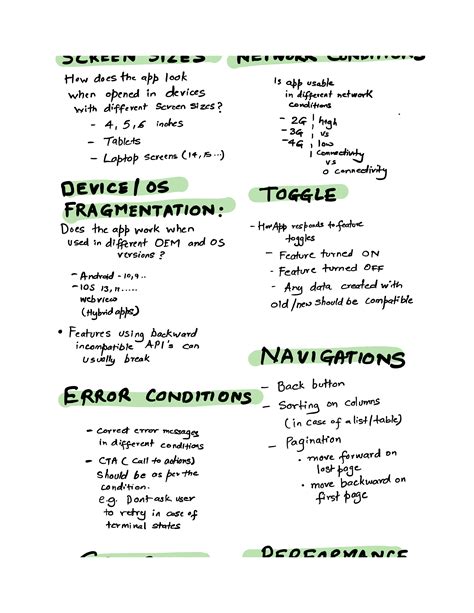 SCREEN SIZES
How does the app look
when opened in devices
with different screen sizes?
- 4, 5, 6 inches
- Tablets
- Laptop screens (14, 15...)
DEVICE/OS
FRAGMENTATION:
Does the app work when
used in different OEM and OS
versions?
- Android - 10, 9..
- IOS 13, 11.....
webview
(Hybrid apps)
• Features using backward
incompatible API's can
usually break
ERROR CONDITIONS
- correct error messages
in different conditions
- CTA (Call to actions)
should be as per the
condition.
e.g. Dont ask user
to retry in case of
terminal states
NETWORK CONDITIONS
Is app usable
in different network
conditions
- 2G high
- 3G vs
- 4G low
connectivity
vs
0 connectivity
TOGGLE
- How App responds to feature
toggles
- Feature turned ON
- Feature turned OFF
- Any data created with
old/new should be compatible
NAVIGATIONS
- Back button
- Sorting on columns
(in case of a list/table)
- Pagination
• move forward on
last page
• move backward on
first page
PERFORMANCE